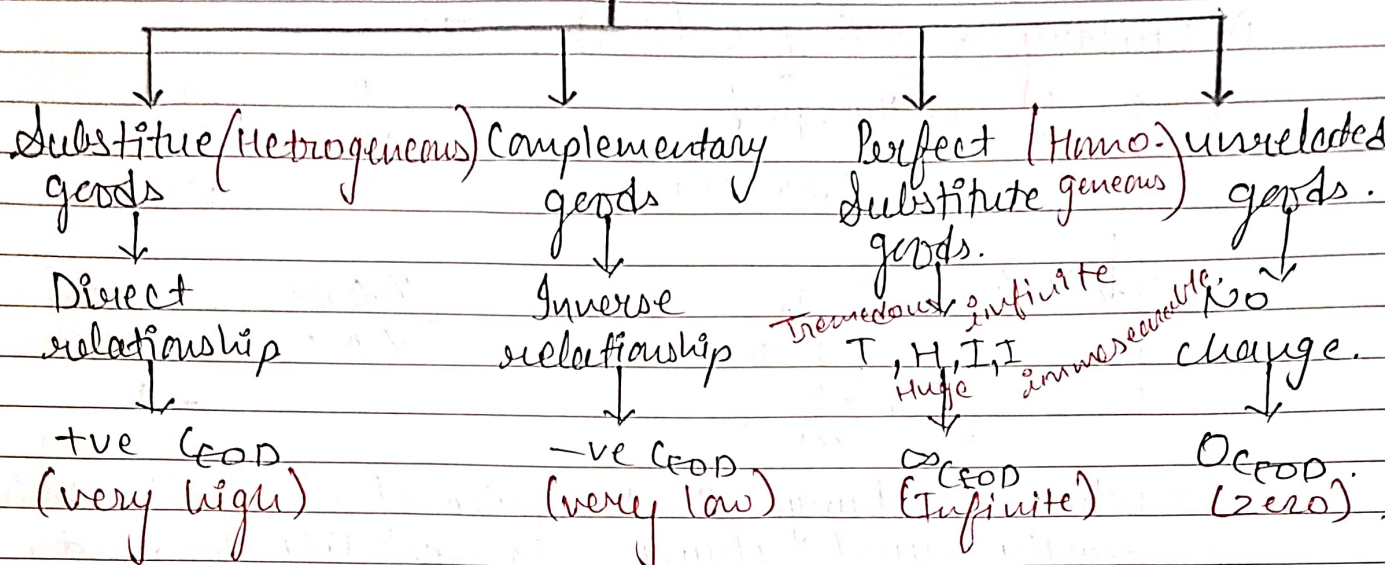 Substitue (Hetrogeneous)
goods
Direct
relationship
+ve CEOD
(very high)
Complementary
goods
Inverse
relationship
-ve CEOD
(very low)
Perfect (Homo-
Substitute geneous)
goods.
Tremedous infinite
T, H, I, I
Huge immeseareable.
∞CEOD
(Infinite)
unrelated
goods.
No
change.
0CEOD.
(zero).